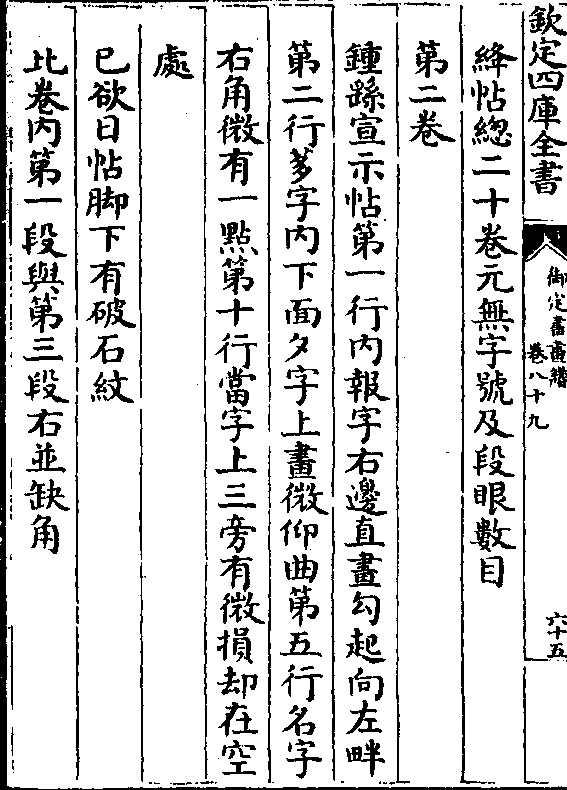 欽定四庫全書
御定書畫譜
卷八十九
六十五
絳帖總二十卷元無字號及段眼數目
第二卷
鍾繇宣示帖第一行内報字右邊直畫勾起向左畔
第二行多字内下面夕字上畫微仰曲第五行名字
右角微有一點第十行當字上三旁有微損却在空
處
已欲日帖脚下有破石紋
比卷内第一段與第三段右並缺角